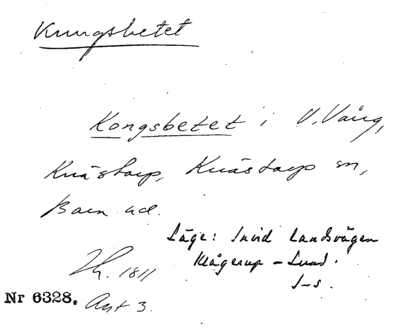 Kungsbetet
Kongsbetet i V. Vång,
Knästorp, Knästorp sn,
Bara hd.
Läge: Invid landsvägen
Klågerup - Lund.
I-s.
Zh. 1811
Nr 6328. Akt 3.